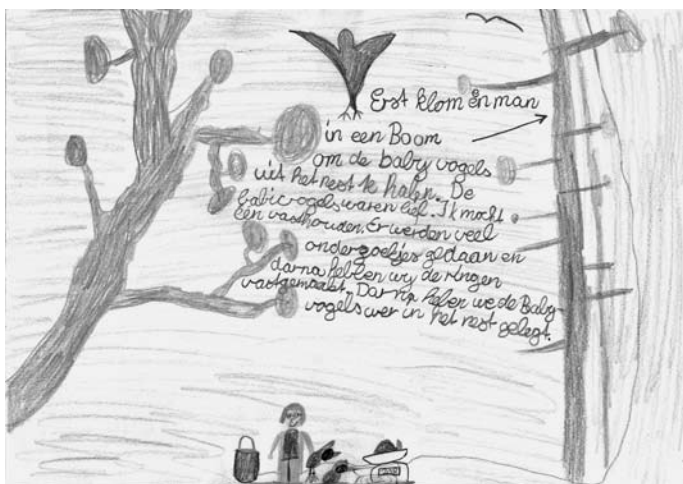 Erst klom en man
in een Boom
om de baby vogels
uit het nest te halen. De
babievogels waren lief. Ik mocht
een vasthouden. Er werden veel
onderzoetjes gedaan en
darna hebben wij de ringen
vastgemaakt. Dar na heben we de Baby-
vogels wer in het nest gelegt.